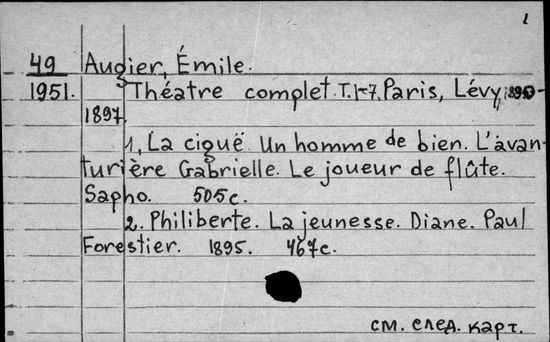 1
49 Augier, Émile.
1951. Théatre complet. T.1-7, Paris, Lévy, 1890-
1897.
1. La ciguë. Un homme de bien. L'avan-
turière Gabrielle. Le joueur de flûte.
Sapho. 505c.
2. Philiberte. La jeunesse. Diane. Paul
Forestier. 1895. 467c.
см. след. карт.